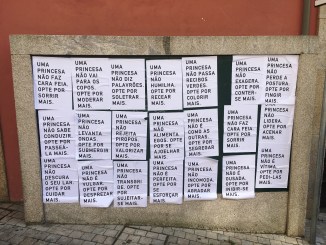 UMA
PRINCESA
NÃO FAZ
CARA FEIA.
OPTE POR
SORRIR
MAIS.
UMA
PRINCESA
NÃO VAI
PARA OS
COPOS.
OPTE POR
MODERAR
MAIS.
UMA
PRINCESA
NÃO DIZ
PALAVRÕES.
OPTE POR
SOLETRAR
MAIS.
UMA
PRINCESA
NÃO
HUMILHA.
OPTE POR
RECEAR
MAIS.
UMA
PRINCESA
NÃO PASSA
RECIBOS
VERDES.
OPTE POR
COLORIR
MAIS.
UMA
PRINCESA
NÃO
EXAGERA.
OPTE POR
CONTER-
SE MAIS.
UMA
PRINCESA
NÃO PERDE
A POSTURA.
OPTE POR
FINGIR
MAIS.
UMA
PRINCESA
NÃO SABE
CONDUZIR.
OPTE POR
PASSEÁ-
LA MAIS.
UMA
PRINCESA
NÃO
LEVANTA
ONDAS.
OPTE POR
SUBMERGIR
MAIS.
UMA
PRINCESA
NÃO
REJEITA
PIROPOS.
OPTE POR
VALORIZAR
MAIS.
UMA
PRINCESA
NÃO
ALIMENTA
EGOS.
OPTE POR
SE AJOELHAR
MAIS.
UMA
PRINCESA
NÃO É
COMO AS
OUTRAS.
OPTE POR
SEGREDAR
MAIS.
UMA
PRINCESA
NÃO FAZ
CARA FEIA.
OPTE POR
SORRIR
MAIS.
UMA
PRINCESA
NÃO
LIDERA.
OPTE POR
ACENAR
MAIS.
UMA
PRINCESA
NÃO
DESCURA
O SEU LAR.
OPTE POR
CUIDAR
MAIS.
UMA
PRINCESA
NÃO É
VULGAR.
OPTE POR
DESPREZAR
MAIS.
UMA
PRINCESA
NÃO
TRANSGRI-
DE. OPTE
POR
SUJEITAR-
SE MAIS.
UMA
PRINCESA
NÃO É
PERFEITA.
OPTE POR
SE
ESFORÇAR
MAIS.
UMA
PRINCESA
NÃO
INCOMODA.
OPTE POR
AGRADAR
MAIS.
UMA
PRINCESA
NÃO É
OUSADA.
OPTE POR
INIBIR-SE
MAIS.
UMA
PRINCESA
NÃO
OPTE POR
PEDI-LAS
MAIS.